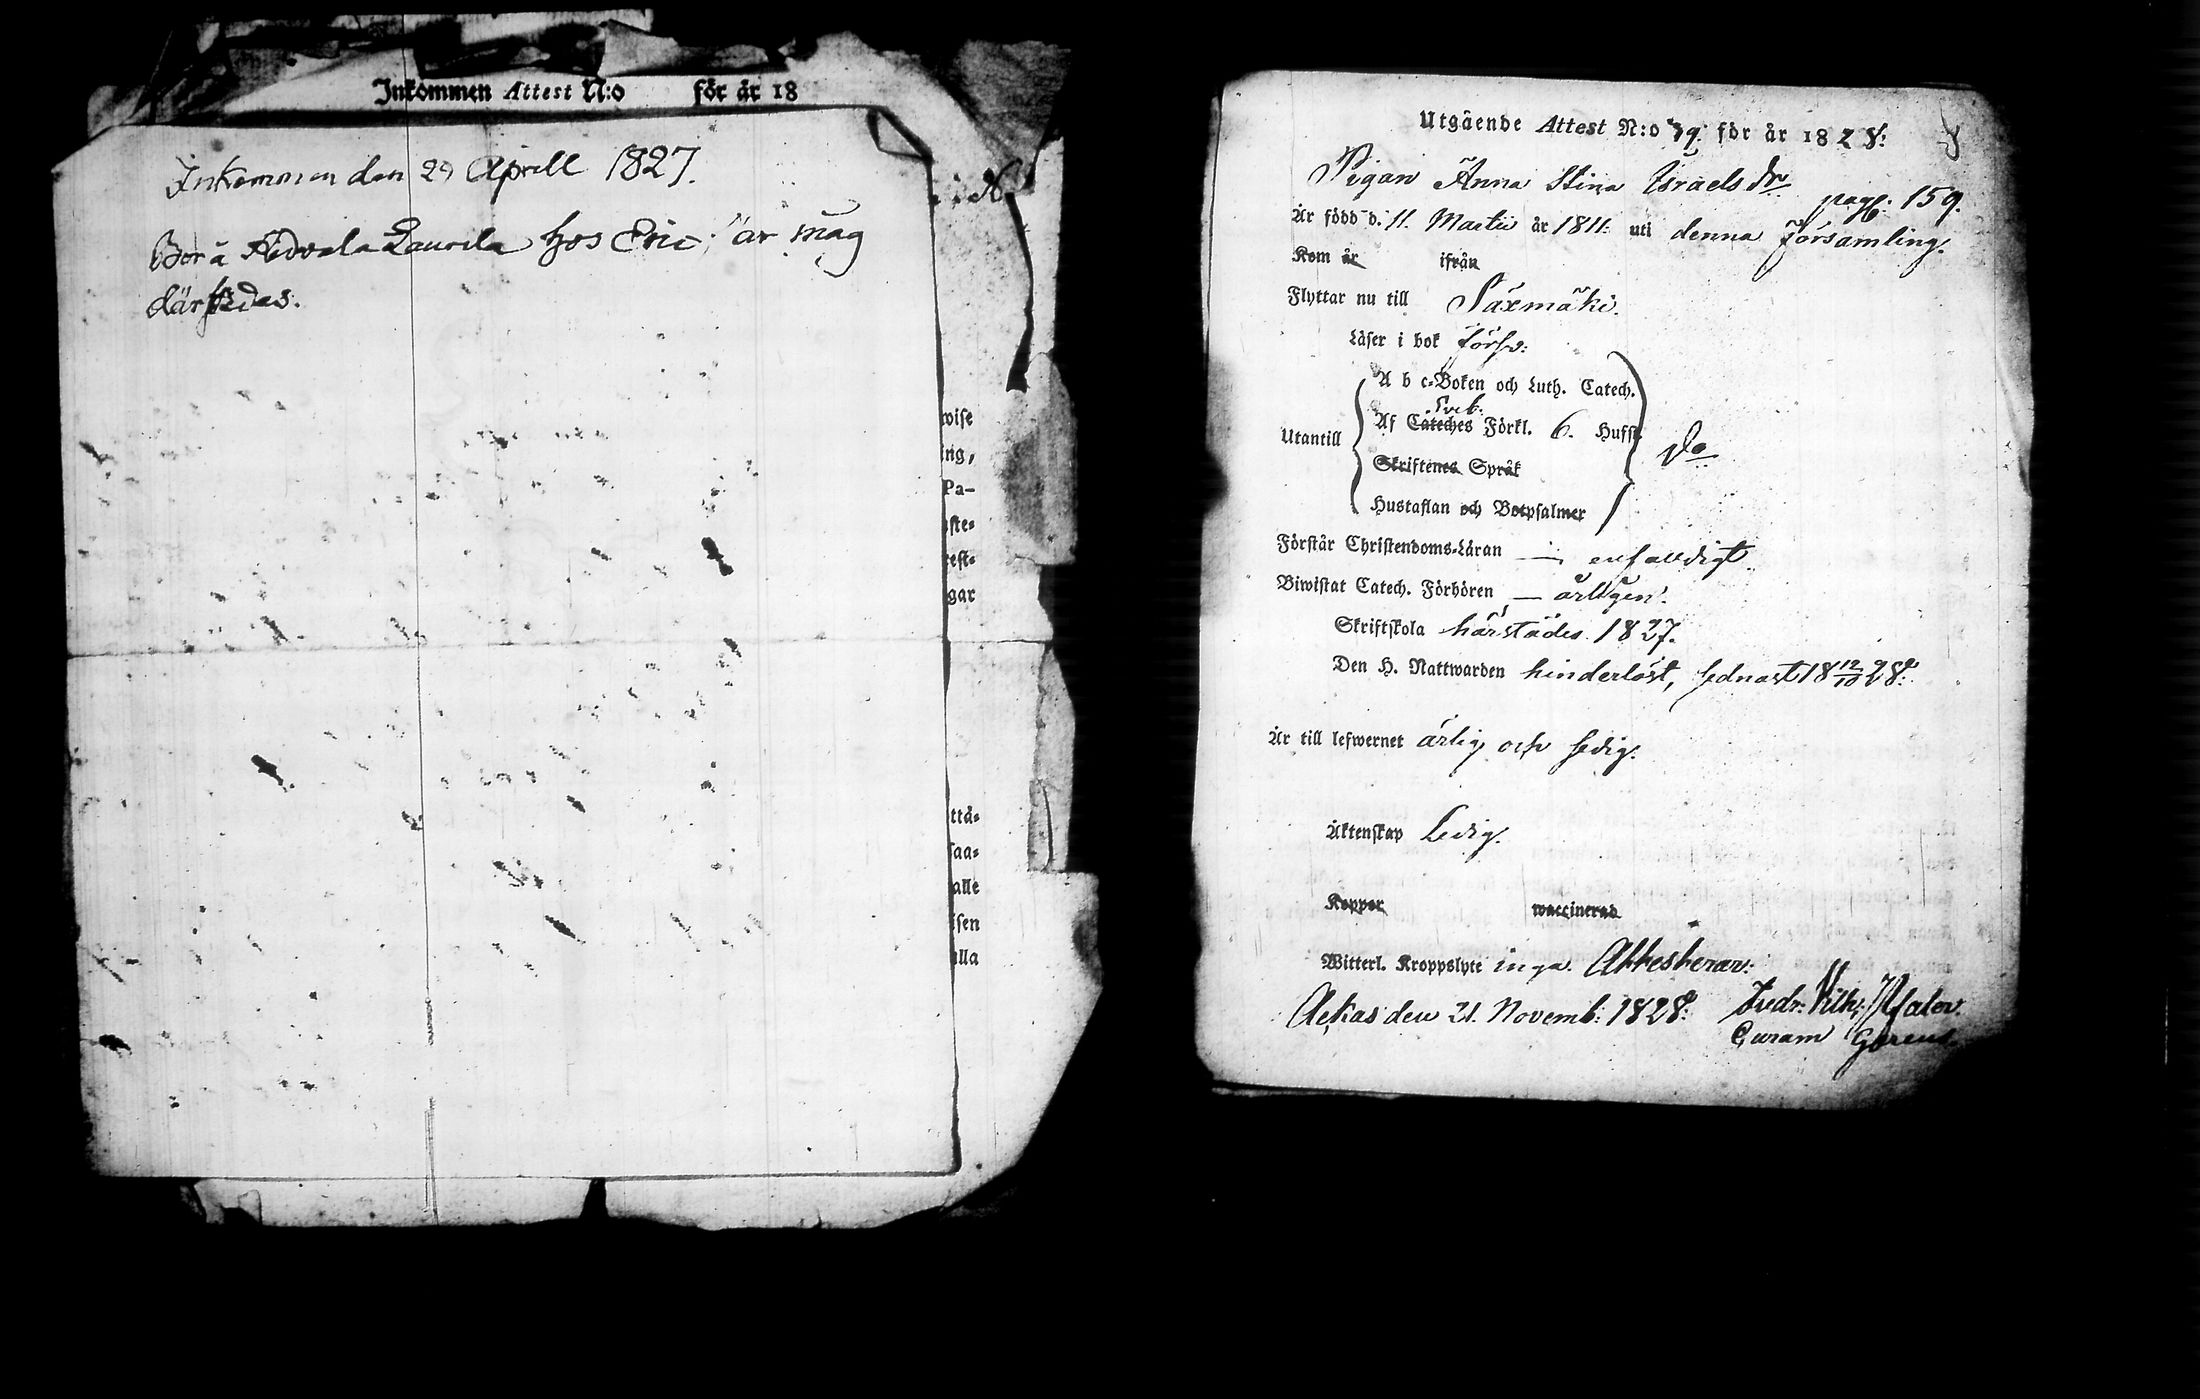 Inkommen Attest N:o för år 18
Inkommen den 29 Aprill 1827.
Bor à Hedvala Laurila hos Eric, är måg
därstädes.
wise
ing,
Pa-
ste-
rest-
gar
ttå-
saa-
alle
isen
illa
Utgående Attest N:o 79. för år 1828:
Pigan Anna Stina Israels dr
pag: 159.
Är född d. 11. Martii år 1811: uti denna församling.
Kom år ifrån
Flyttar nu till Säxmäki.
Läser i bok försv:
A b c-Boken och Luth. Catech.
Sveb:
Utantill Af Cateches Förkl. 6. Hufst. do
Skriftenes Språk
Hustaflan och Botpsalmer
Förstår Christendoms-Läran — enfaldigt
Biwistat Catech. Förhören — årligen.
Skriftskola härstädes 1827.
Den H. Nattwarden hinderlöst, sednast 18 12/10 28:
Är till lefwernet ärlig och sedig.
Äktenskap Ledig.
Koppor waccinerad
Witterl. Kroppslyte inga. Attesterar:
Ackas den 21. Novemb: 1828: Fredr: Wilh:
Curam Gerens